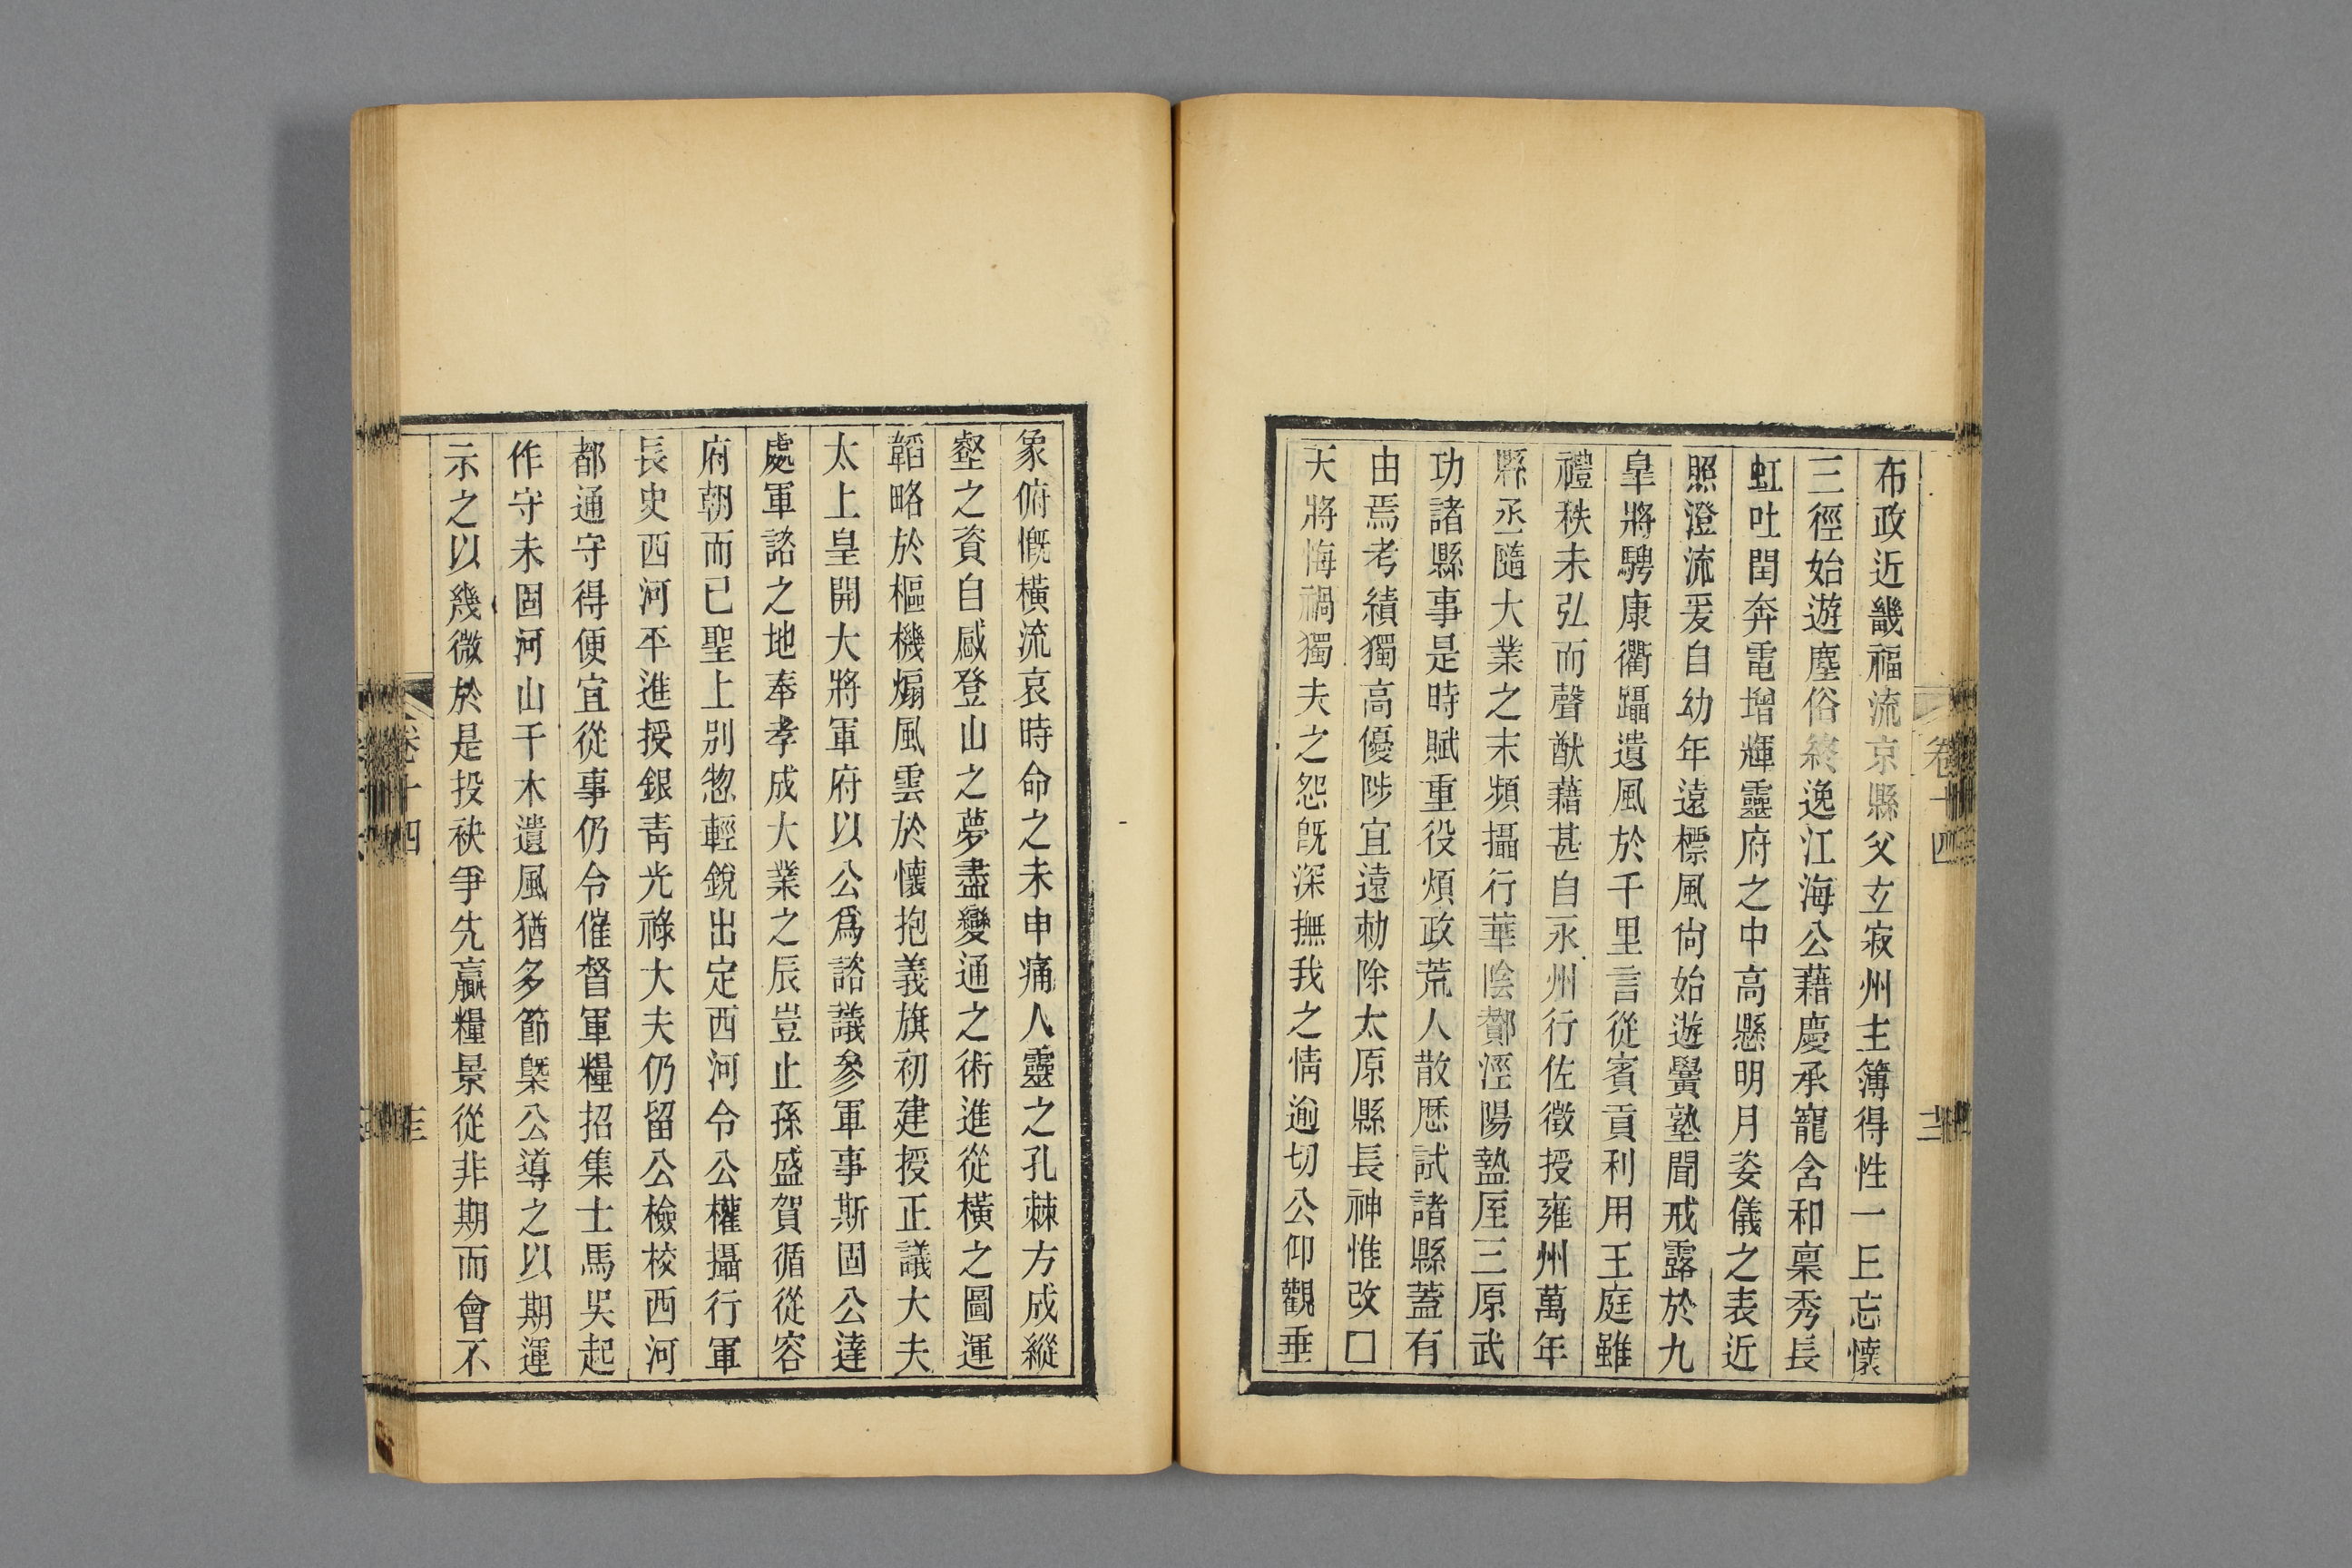 布政近畿福流京縣父玄寂州主簿得性一丘忘懷
三徑始遊塵俗終逸江海公藉慶承寵含和稟秀長
虹吐閏奔電增輝靈府之中高懸明月姿儀之表近
照澄流爰自幼年遠標風尙始遊黌塾聞戒露於九
皐將騁康衢躡遺風於千里言從賓貢利用王庭雖
禮秩未弘而聲猷藉甚自永州行佐徵授雍州萬年
縣丞隨大業之末頻攝行華陰鄭涇陽盩厔三原武
功諸縣事是時賦重役煩政荒人散歷試諸縣蓋有
由焉考績獨高優陟宜遠勑除太原縣長神惟改□
天將悔禍獨夫之怨旣深撫我之情逾切公仰觀垂
卷十四
象俯慨橫流哀時命之未申痛人靈之孔棘方成縱
壑之資自感登山之夢盡變通之術進從橫之圖運
韜略於樞機煽風雲於懷抱義旗初建授正議大夫
太上皇開大將軍府以公爲諮議參軍事斯固公達
處軍諮之地奉孝成大業之辰豈止孫盛賀循從容
府朝而已聖上別惣輕銳出定西河令公權攝行軍
長史西河平進授銀靑光祿大夫仍留公檢校西河
都通守得便宜從事仍令催督軍糧招集士馬吳起
作守未固河山干木遺風猶多節槩公導之以期運
示之以幾微於是投袂爭先贏糧景從非期而會不
卷十四